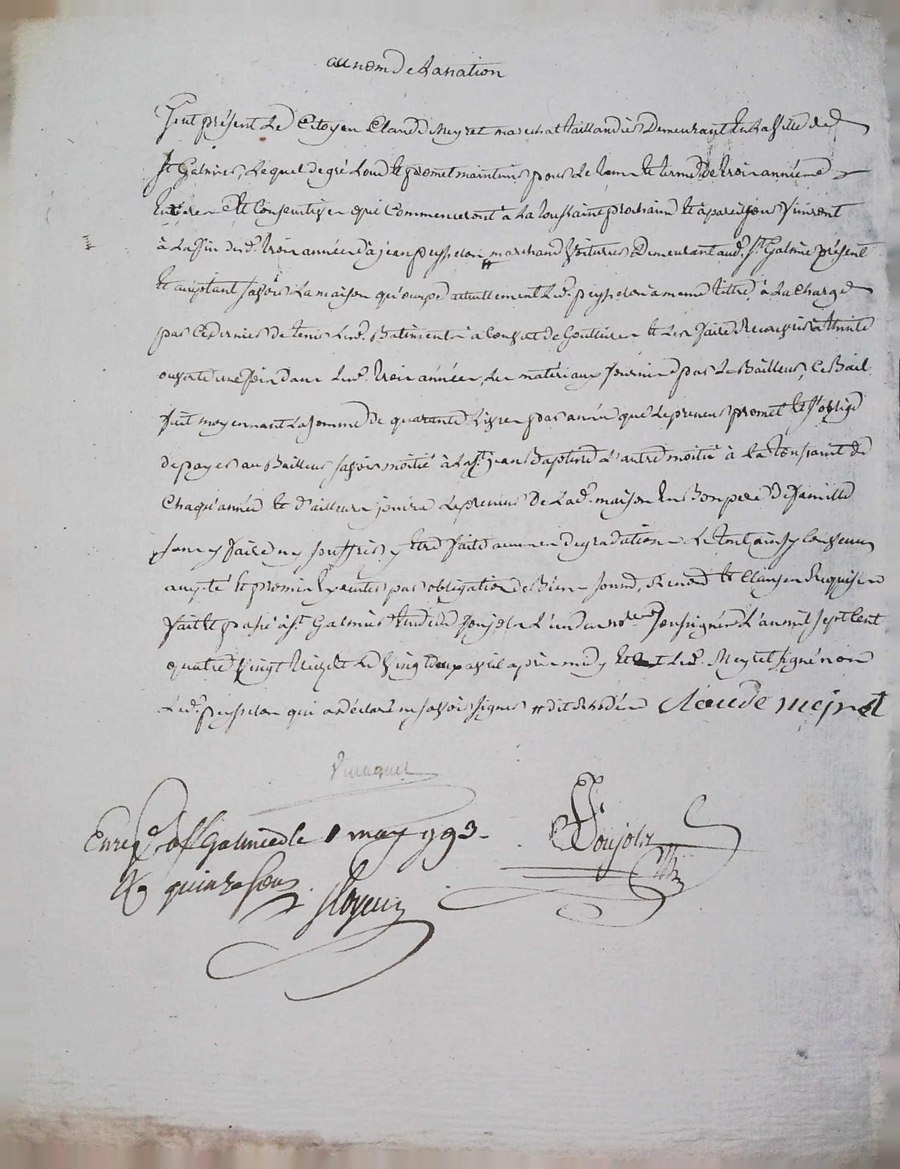 au nom de la nation
feut présent le Citoyen Claude Meyret marechal taillandier Demeurant En la ville de
St Galmier, Lequel de gré Loue et promet maintenir pour le tems et terme de trois années
Entieres et Consecutives qui Commenceront à la toussaint prochaine et à pareil jour finiront
à la fin desd. trois années à jean peysselon marchand voiturier Demeurant aud. St Galmier présent
et acceptant savoir La maison qu'occupe actuellement Led. peysselon à meme titre, à la Charge
par Ce dernier de tenir Led. Batiment à Couvert de Gouttieres et Les faire Recouvrir à tuille
ouverte une fois dans Lesd. trois années, Les materiaux fournis par Le Bailleur, Ce Bail
fait moyennant la somme de quarante Livres par année que Le preneur promet et s'oblige
de payer au Bailleur savoir moitié à la St jean Baptiste L'autre moitié à la toussaint de
Chaque année et d'ailleurs jouira Le preneur De Lad. maison En Bon pere De famille
sans y faire ny souffrir y Etre fait aucunes degradations Le tout ainsy Convenu
accepté Et promis Executer par obligation de Biens soumis, Renon. et Clauses Requises
fait Et passé à St Galmier Etude de Poujols L'un des nores soussignés L'an mil sept Cent
quatre vingt treize Le vingt deux avril après midy Et Led. Meyret signé non
Led. peysselon qui a déclaré ne savoir signer # dit Claude mejret
Enregé à St Galmier le 1 may 1793.
R quinze sous
Poujols
Nre